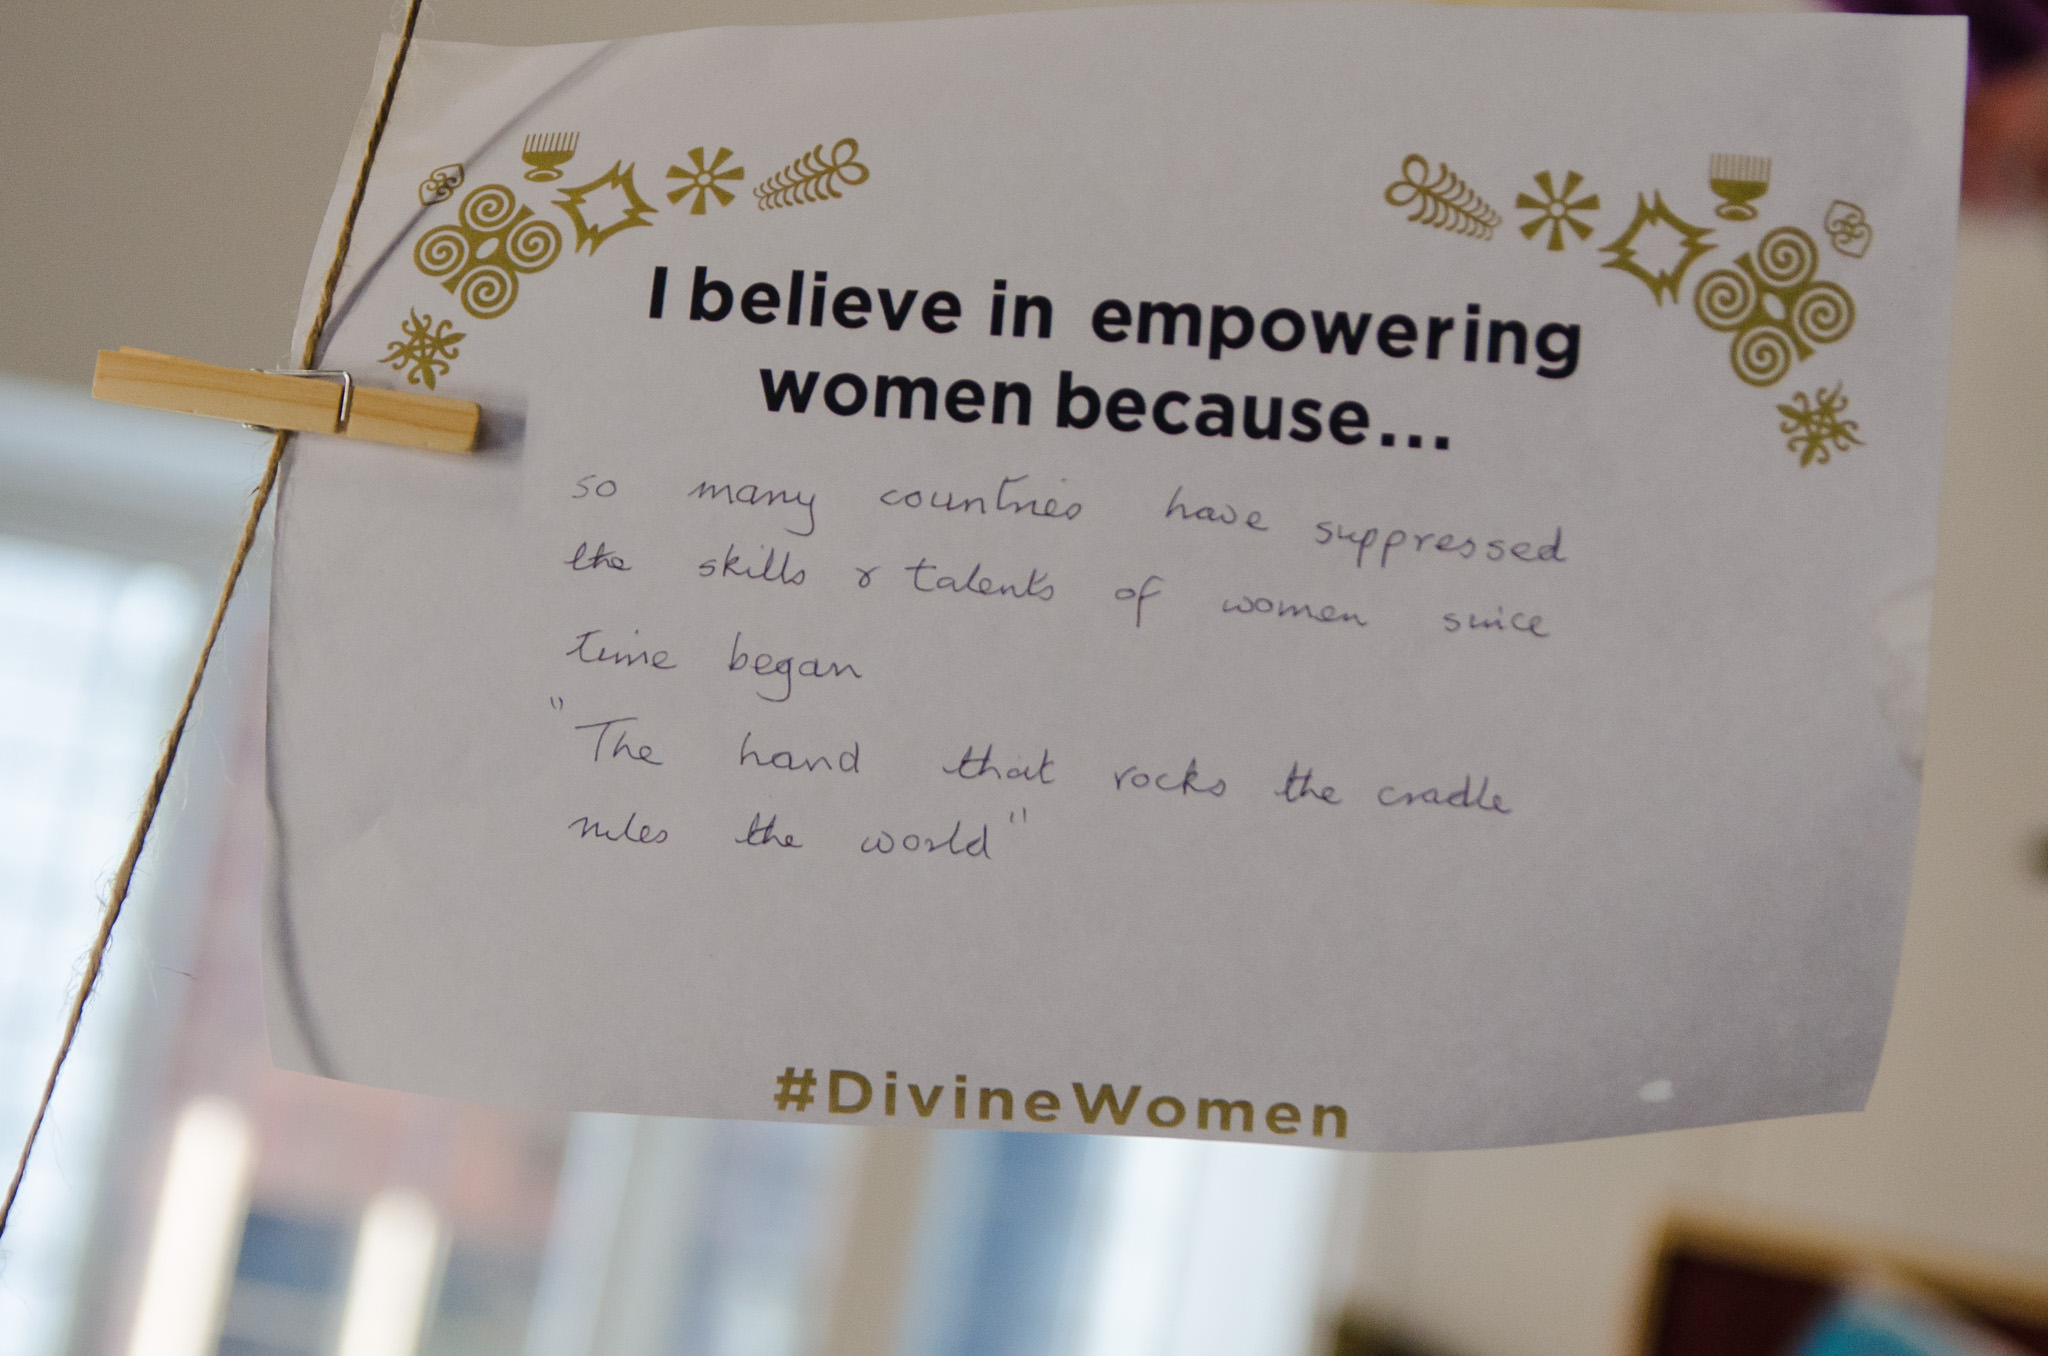 I believe in empowering
women because...
so many countries have suppressed
the skills & talents of women since
time began
"The hand that rocks the cradle
rules the world"
#DivineWomen